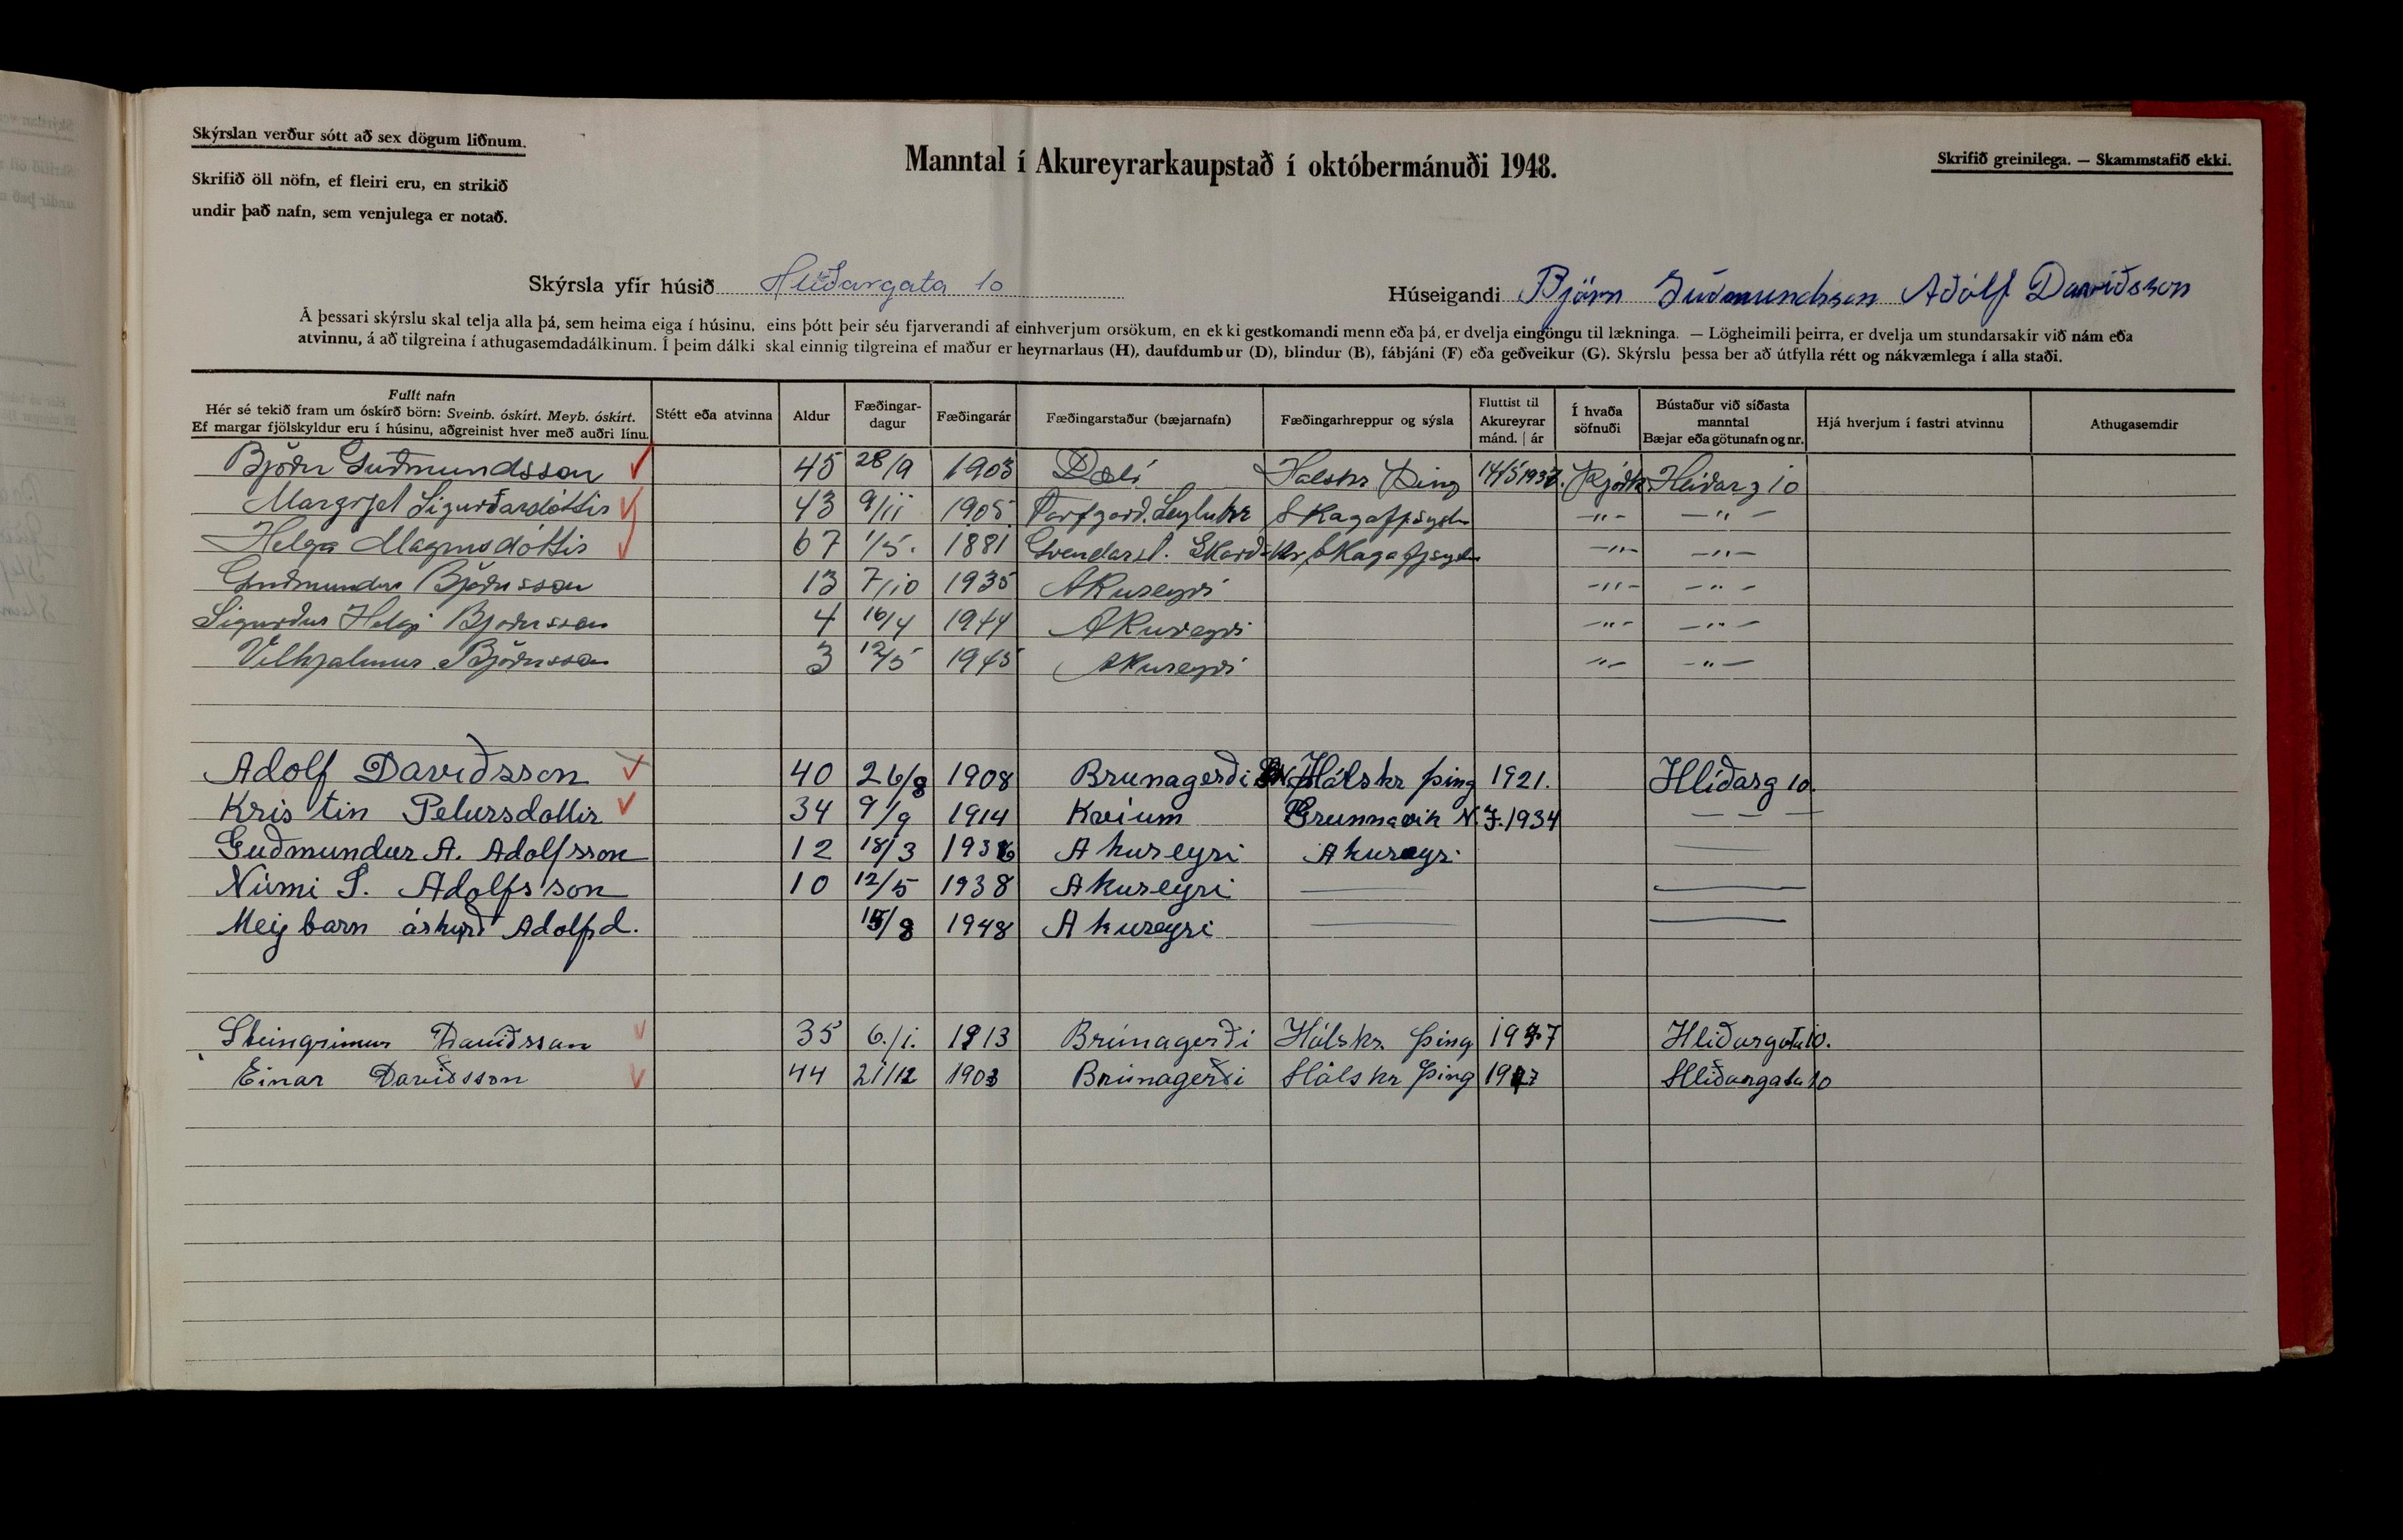 Skýrslan verður sótt að sex dögum liðnum.
Skrifið öll nöfn, ef fleiri eru, en strikið
undir það nafn, sem venjulega er notað.
Manntal í Akureyrarkaupstað í októbermánuði 1948.
Skrifið greinilega. — Skammstafið ekki.
Skýrsla yfir húsið Hlíðargata 10
Húseigandi Björn Guðmundsson Aðólf Davíðsson
Á þessari skýrslu skal telja alla þá, sem heima eiga í húsinu, eins þótt þeir séu fjarverandi af einhverjum orsökum, en ekki gestkomandi menn eða þá, er dvelja eingöngu til lækninga. — Lögheimili þeirra, er dvelja um stundarsakir við nám eða
atvinnu, á að tilgreina í athugasemdadálkinum. Í þeim dálki skal einnig tilgreina ef maður er heyrnarlaus (H), daufdumbur (D), blindur (B), fábjáni (F) eða geðveikur (G). Skýrslu þessa ber að útfylla rétt og nákvæmlega í alla staði.
Fullt nafn
Hér sé tekið fram um óskírð börn: Sveinb. óskírt. Meyb. óskírt.
Ef margar fjölskyldur eru í húsinu, aðgreinist hver með auðri línu.
Stétt eða atvinna
Aldur
Fæðingar-
dagur
Fæðingarár
Fæðingarstaður (bæjarnafn)
Fæðingarhreppur og sýsla
Fluttist til
Akureyrar
mánd. | ár
Í hvaða
söfnuði
Bústaður við síðasta
manntal
Bæjar eða götunafn og nr.
Hjá hverjum í fastri atvinnu
Athugasemdir
Björn Guðmundsson 45 28/9 1903 Dæli Halshr Þing 14/5 1937. Þjóðk Hlíðarg 10
Margrjet Sigurðardóttir 43 9/11 1905 Torfgarð. Seyluhr Skagafjsyslu -"- -"-
Helga Magnusdóttir 67 1/5. 1881 Gvendarst. Skarðshr, Skagafjsyslu -"- -"-
Guðmundur Björnsson 13 7/10 1935 Akureyri -"- -"-
Sigurður Helgi Björnsson 4 16/4 1944 Akureyri -"- -"-
Vilhjalmur Björnsson 3 12/5 1945 Akureyri -"- -"-
Adolf Davíðsson 40 26/8 1908 Brunagerði Hálshr þing 1921. Hlíðarg 10.
Kristin Petursdottir 34 9/9 1914 Kvíum Grunnavik N.Í. 1934 — — —
Guðmundur A. Adolfsson 12 18/3 1936 Akureyri Akureyri —
Númi S. Adolfsson 10 12/5 1938 Akureyri — —
Meijbarn óskýrð Adolfsd. 15/8 1948 Akureyri — —
Steingrimur Davíðsson 35 6./1. 1913 Brúnagerði Hálshr. þing 1947 Hlíðargata 10.
Einar Davíðsson 44 21/12 1903 Brúnagerði Hálshr Þing 1927 Hlíðargata 10